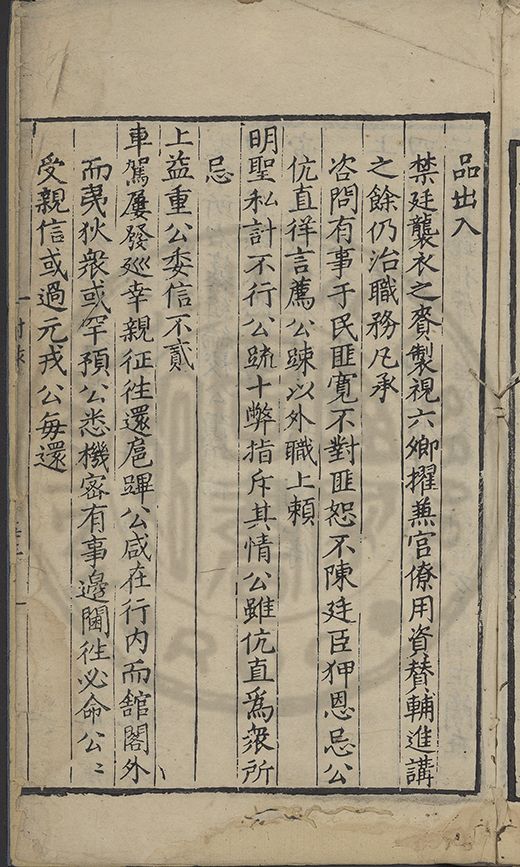 品出入
禁廷襲衣之賚製視六鄉擢兼宮僚用資賛輔進講
之餘仍治職務凡承
咨問有事于民匪寛不對匪恕不陳廷臣狎恩忌公
伉直徉言薦公踈以外職上頼
明聖私計不行公䟽十弊指斥其情公雖伉直爲衆所
忌
上益重公委信不貳
車駕屢發廵幸親征徃還扈蹕公咸在行内而舘閣外
而夷狄衆或罕預公悉機宻有事邉閫徃必命公〻
受親信或過元戎公毎還